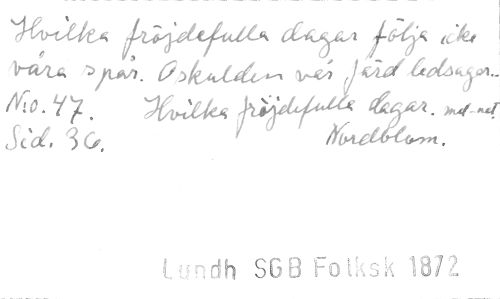 Hvilka fröjdefulla dagar följa icke
våra spår. Oskulden vår färd ledsagar.
N:o. 47. Hvilka fröjdefulla dagar. mel-net.
Sid. 36. Nordblom.
Lundh SGB Folksk 1872